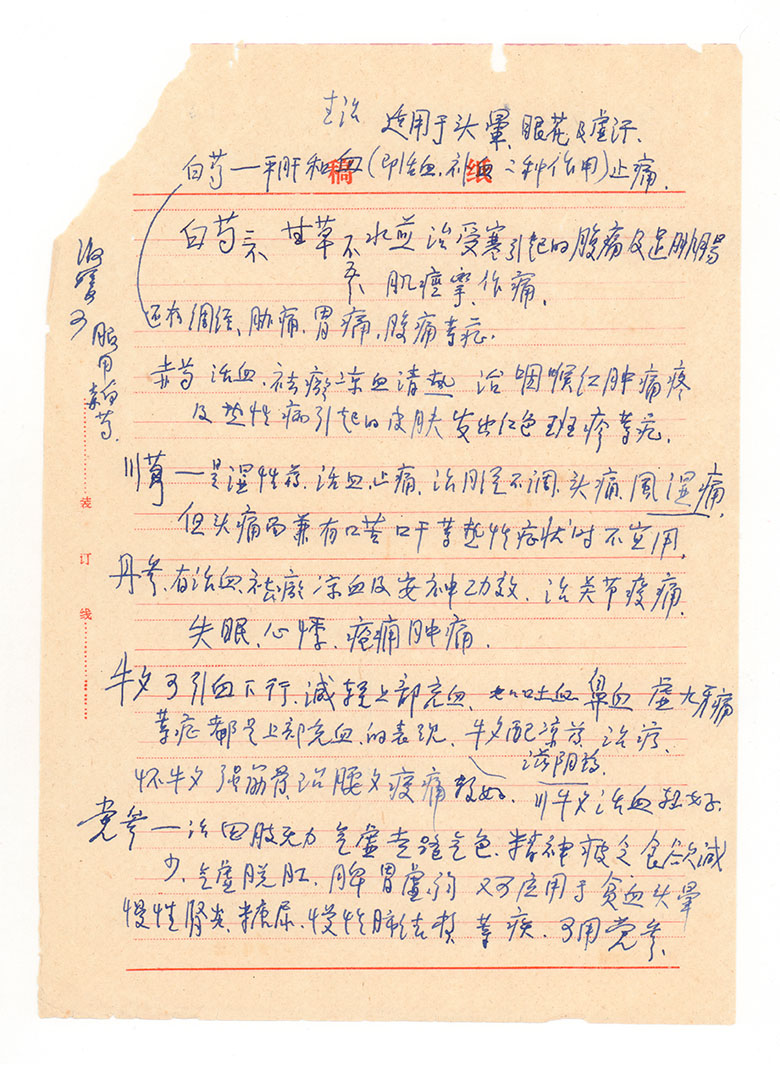 主治 适用于头晕、眼花及虚汗、
白芍—平肝和血(即活血、补血二种作用)止痛、
稿纸
白芍 甘草 水煎 治受寒引起的腹痛及足
肌痉挛、作痛、
还有调经、胁痛、胃痛、腹痛等症、
赤芍 活血、祛瘀凉血清热 治咽喉红肿痛疼
及热性病引起的皮肤发出红色斑疹等症、
川芎—是温性药、活血、止痛、治月经不调、头痛、风湿痛
但头痛而兼有口苦口干等热性症状时不宜用、
丹参、有活血、祛瘀凉血及安神功效、治关节痠痛、
失眠、心悸、疮痈肿痛、
牛夕可引血下行、减轻上部充血、如吐血 鼻血 虚火牙痛
等症都是上部充血、的表现、牛夕配凉药、治疗、
滋阴药、
怀牛夕 强筋骨、治腰夕痠痛较好、川牛夕活血较好、
党参—治四肢无力 气虚 精神疲乏 食欲减
少、气虚脱肛、脾胃虚弱 又可应用于贫血头晕
慢性肾炎、糖尿、慢性肺结核等疾、可用党参、
可
服用
白芍、
装订线